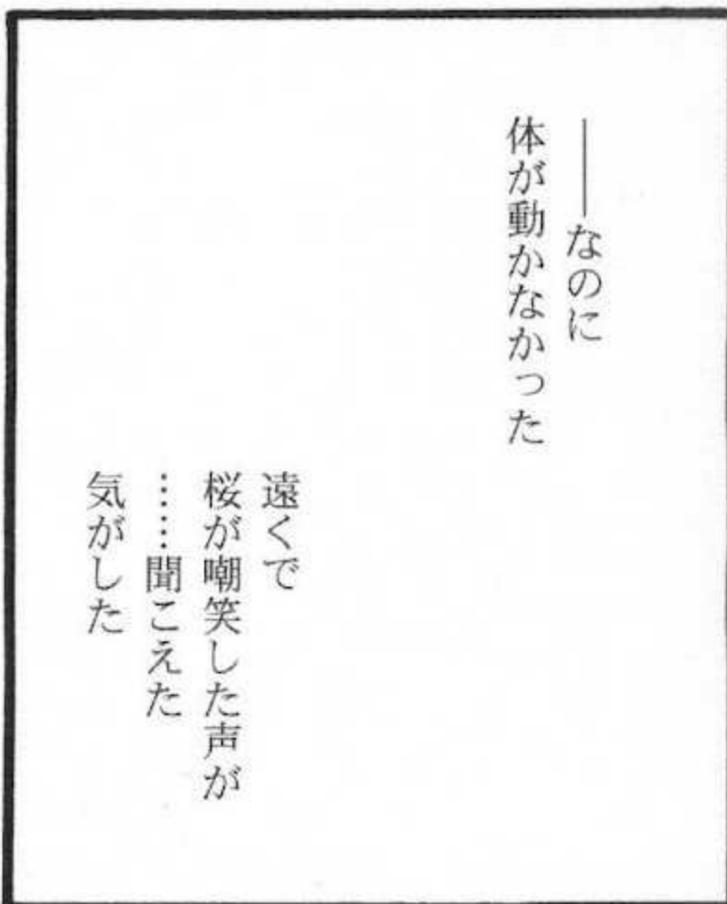 ――なのに
体が動かなかった
遠くで
桜が嘲笑した声が
……聞こえた
気がした